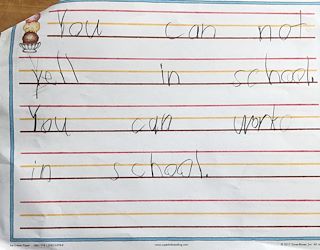 You can not
yell in school.
You can work
in school.